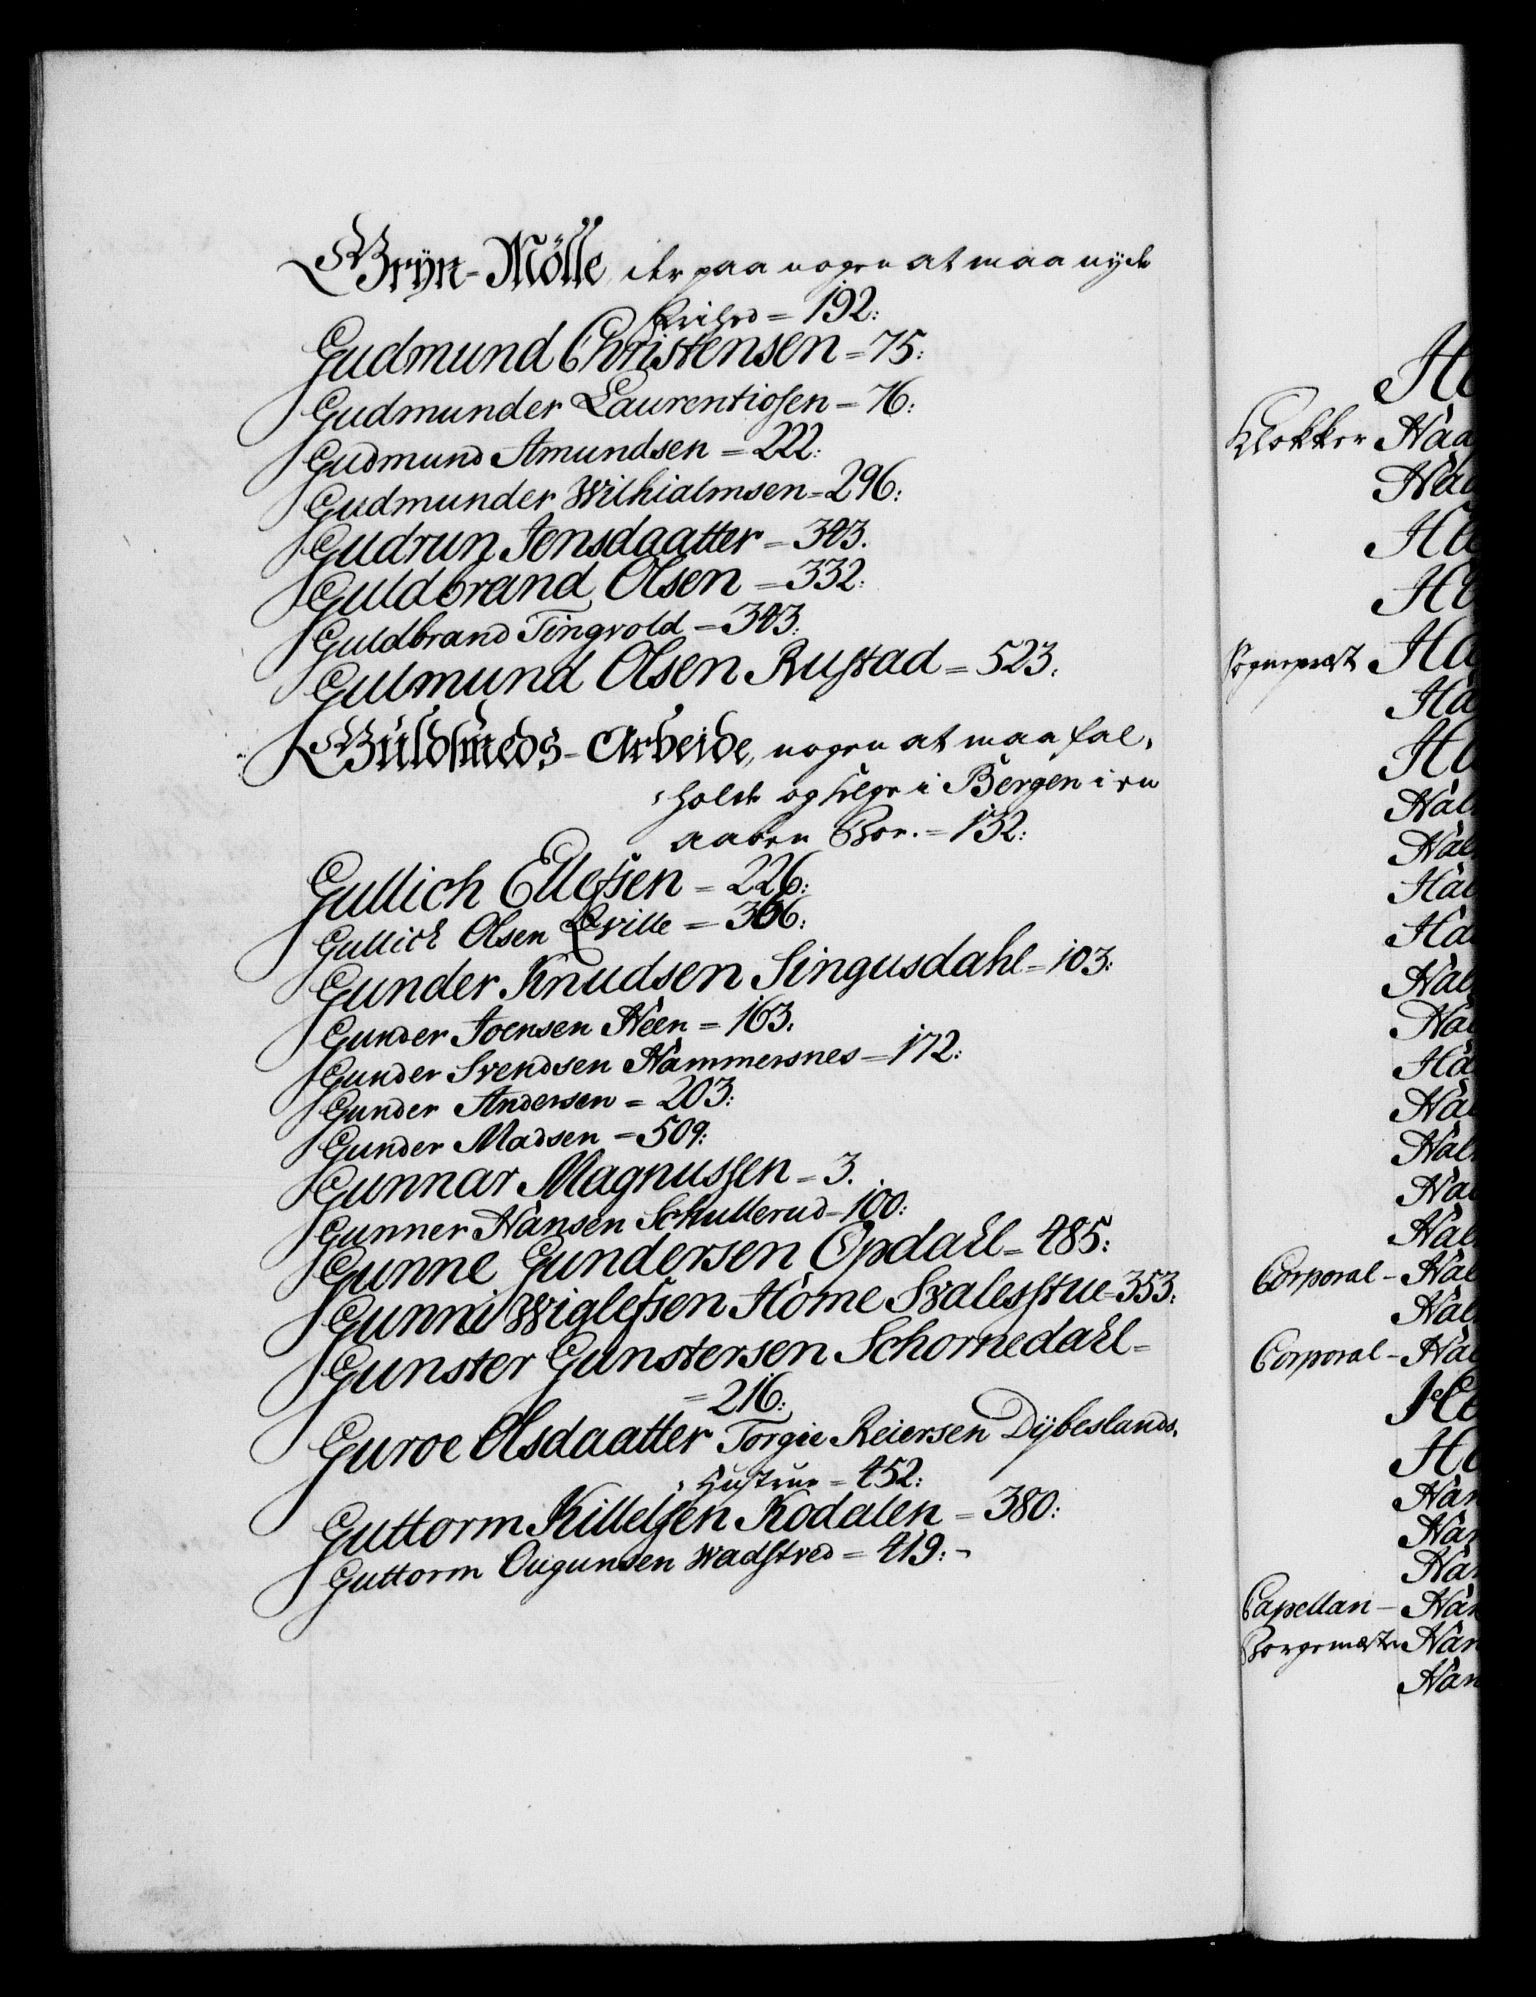 Gryn-Mölle, der paa nogen at maa nyde
Frihed = 192:
Gudmund Christensen = 75:
Gudmunder Laurentiossen = 76:
Gudmund Amundsen = 222:
Gudmunder Wilhialmsen = 296:
Gudrun Jensdaatter = 343.
Guldbrand Olsen = 332:
Guldbrand Tingvold = 343:
Gulmund Olsen Rustad = 523.
Guldsmeds-Arbeide, nogen at maa fal-
holde og selge i Bergen i en
aaben Boe. = 132:
Gullich Ellefsen = 226:
Gullich Olsen Qville = 366:
Gunder Knudsen Singusdahl = 103:
Gunder Joensen Neen = 163.
Gunder Svendsen Hammersnes = 172:
Gunder Andersen = 203:
Gunder Madsen = 509:
Gunnar Magnussen = 3.
Gunner Hansen Schullerud = 100:
Gunne Gundersen Opdahl = 485:
Gunni Wiglefsen Home Svalesstue = 353:
Gunster Gunstersen Schornedahl =
= 216:
Guroe Olsdaatter Torgie Reiersen Dybeslands
Hustrue = 452:
Guttorm Killelsen Kodalen = 380:
Guttorm Ougunsen Wadstved = 419:
Klokker
Sogneprest
Corporal -
Corporal -
Capellan -
Borgemester